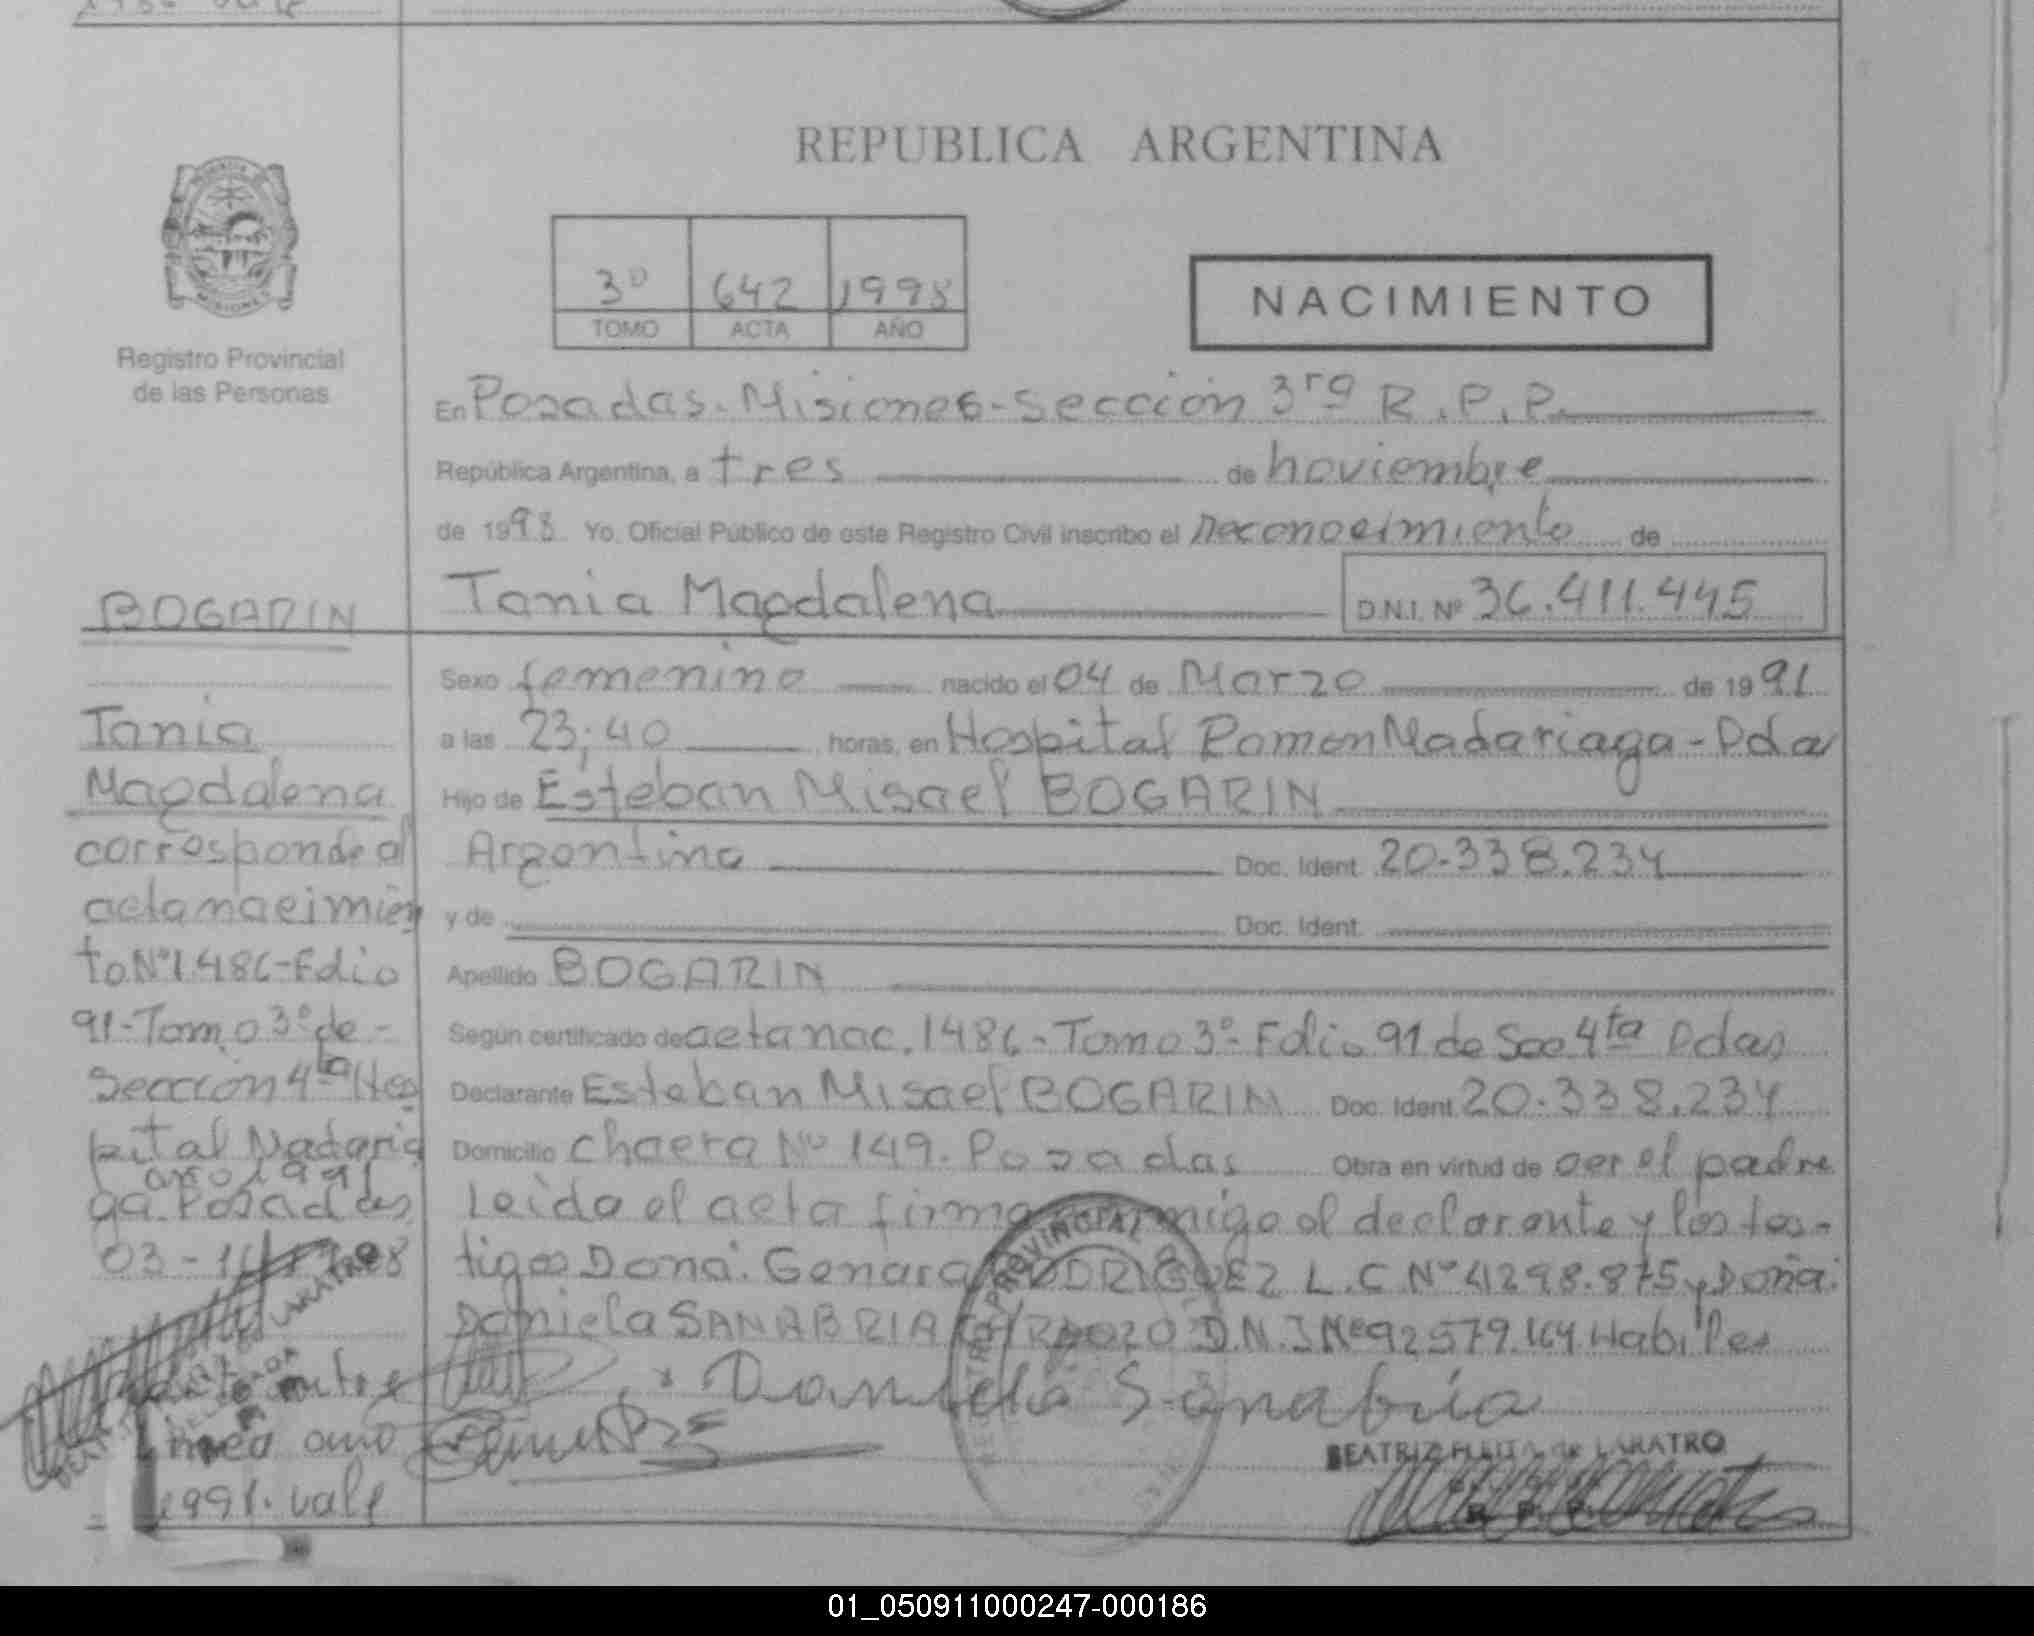 REPUBLICA ARGENTINA
3º 642 1998
TOMO ACTA AÑO
NACIMIENTO
MISIONES
Registro Provincial
de las Personas
En Posadas. Misiones-Sección 3ra R.P.P.
República Argentina, a tres de noviembre
de 1998 Yo, Oficial Público de este Registro Civil inscribo el Reconocimiento de
BOGARIN
Tania Magdalena D.N.I. Nº 36.411.445
Sexo femenino nacido el 04 de Marzo de 1991
a las 23:40 horas, en Hospital Ramon Madariaga-Pda
Hijo de Esteban Misael BOGARIN
Argentino Doc. Ident. 20.338.234
y de Doc. Ident.
Apellido BOGARIN
Según certificado de acta nac. 1486-Tomo 3º-Folio 91 de Sec 4ta Pdas
Declarante Esteban Misael BOGARIN Doc. Ident. 20.338.234
Domicilio Chacra Nº 149. Posadas Obra en virtud de ser el padre
Leida el acta firma conmigo el declarante y los tes-
tigos Doña: Genara RODRIGUEZ L.C Nº 4298.875 y Doña:
Daniela SANABRIA D.N.I Nº 92579.164. Habiles
Daniela Sanabria
BEATRIZ FLEITA de LARATRO
R. P. P.
Tania
Magdalena
corresponde al
acta nacimien
to Nº 1486-Folio
91-Tomo 3º de-
Sección 4ta Hos
pital Madaria
año 1991
ga. Posadas
03-11-1998
entre
linea año
1991. vale
REGISTRO PROVINCIAL
01_050911000247-000186